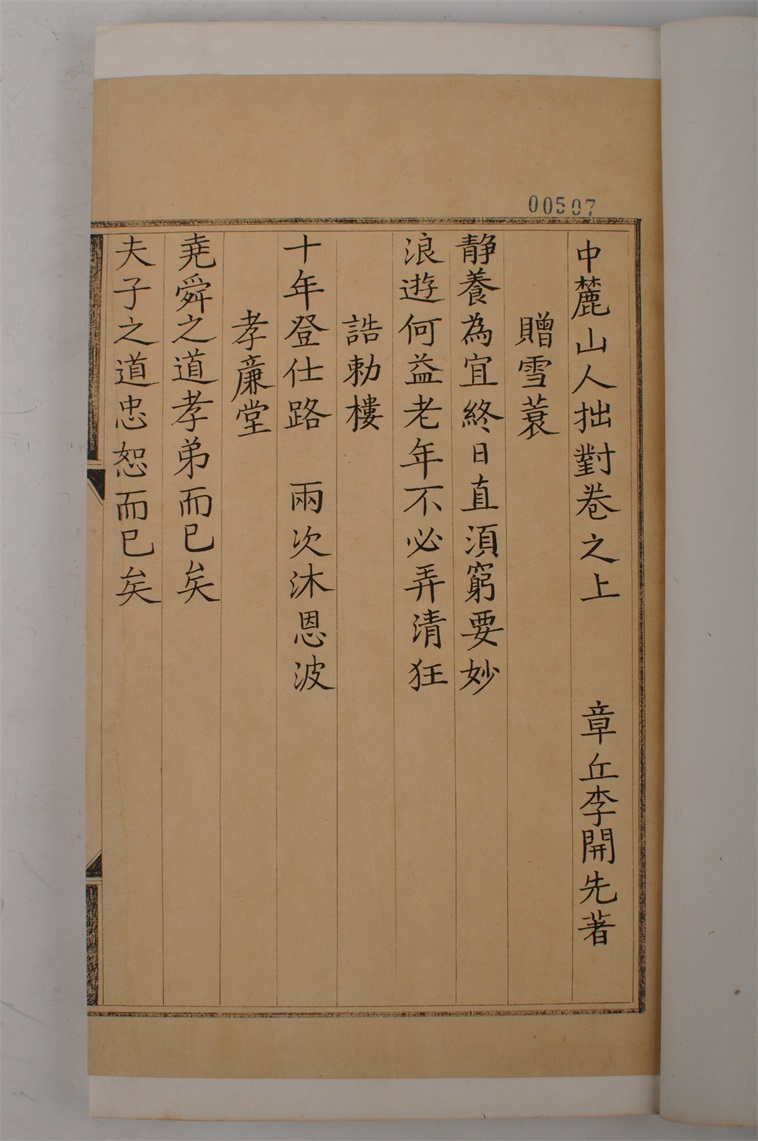 00507
中麓山人拙對卷之上 章丘李開先著
贈雪蓑
靜養為宜終日直須窮要妙
浪遊何益老年不必弄清狂
誥勅樓
十年登仕路 兩次沐恩波
孝廉堂
堯舜之道孝弟而已矣
夫子之道忠恕而已矣